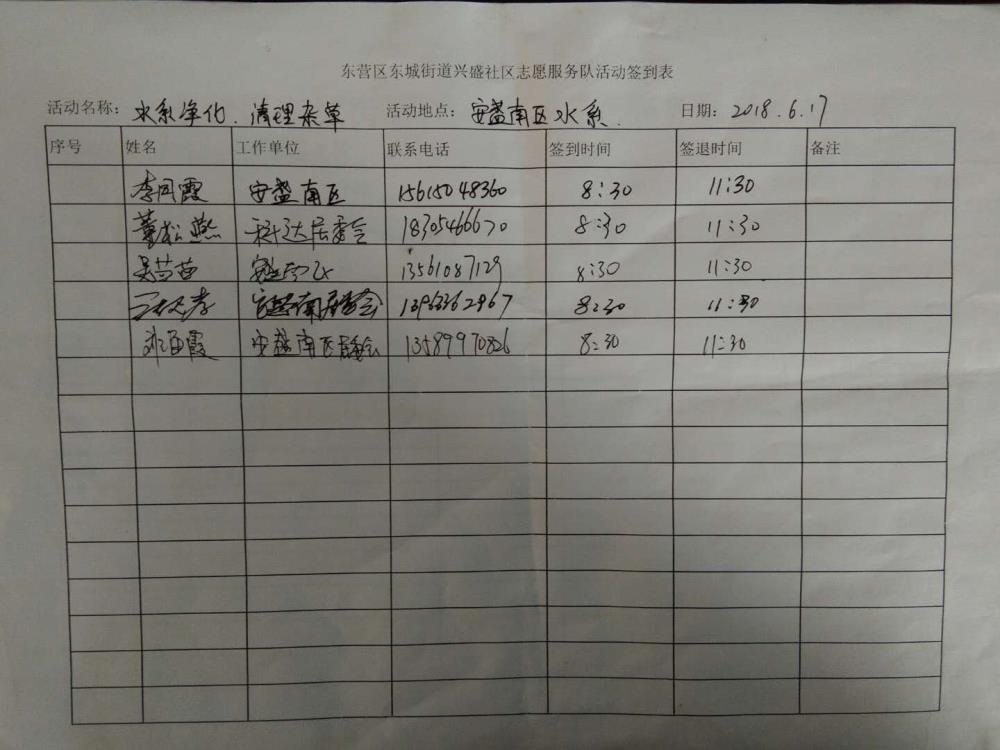 东营区东城街道兴盛社区志愿服务队活动签到表
活动名称：水系净化、清理杂草 活动地点：安盛南区水系. 日期：2018.6.17
序号 姓名 工作单位 联系电话 签到时间 签退时间 备注
李同霞 安盛南区 15615048360 8:30 11:30
董松燕 科达居委会 18305466670 8:30 11:30
吴苗苗 13561087129 8:30 11:30
南居委会 13963362967 8:30 11:30
霞 安盛南区居委会 13589970826 8:30 11:30